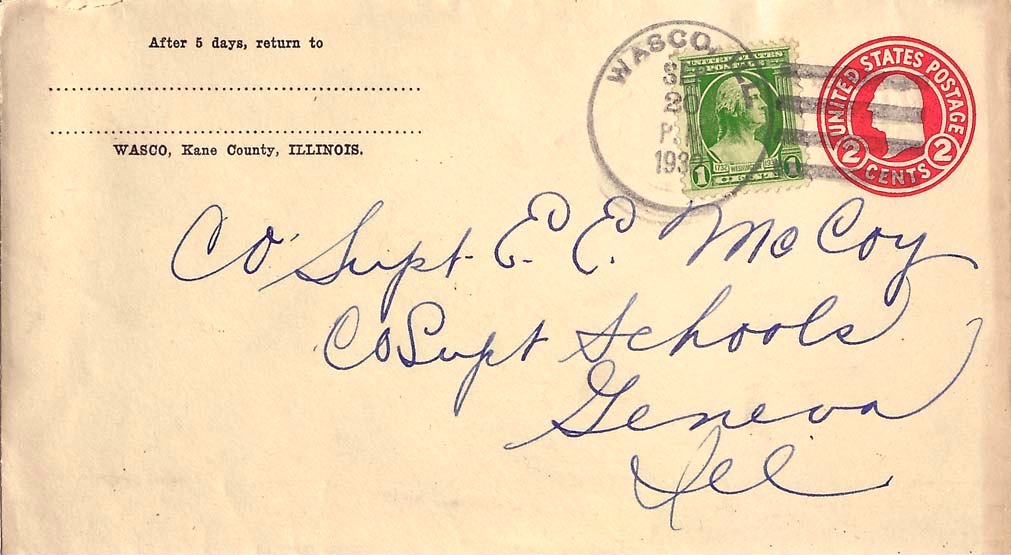 After 5 days, return to
WASCO, Kane County, ILLINOIS.
WASCO,
20
193
UNITED STATES
POSTAGE
1732 WASHINGTON
1 1
UNITED STATES POSTAGE
2 CENTS 2
Co Supt. E. E. McCoy
Co Supt Schools
Geneva
Ill